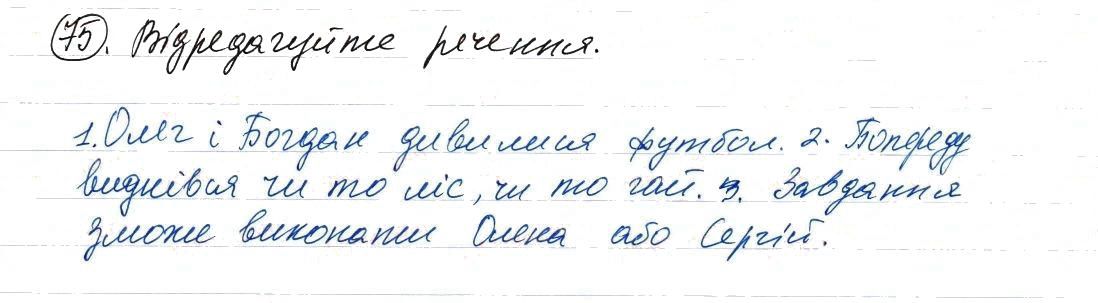 75. Відредагуйте речення.
1. Олег і Богдан дивилися футбол. 2. Попереду
виднівся чи то ліс, чи то гай. 3. Завдання
зможе виконати Олена або Сергій.